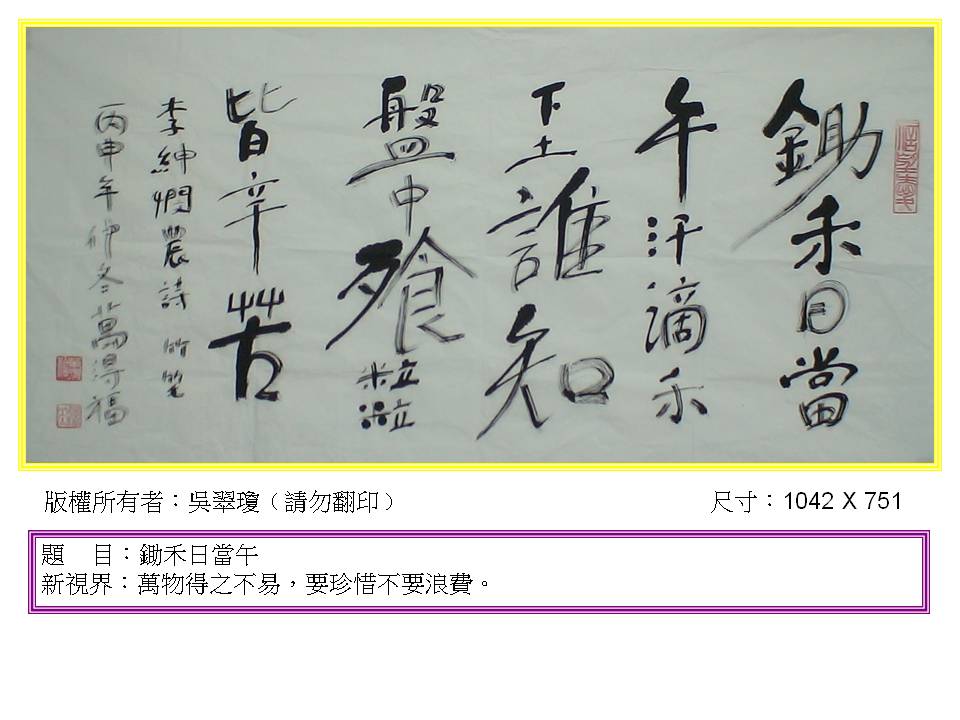 鋤禾日當
午汗滴禾
下土誰知
盤中飧粒粒
皆辛苦
李紳憫農詩 竹笔
丙申年仲冬萬得福
版權所有者：吳翠瓊（請勿翻印）
尺寸：1042 X 751
題　目：鋤禾日當午
新視界：萬物得之不易，要珍惜不要浪費。